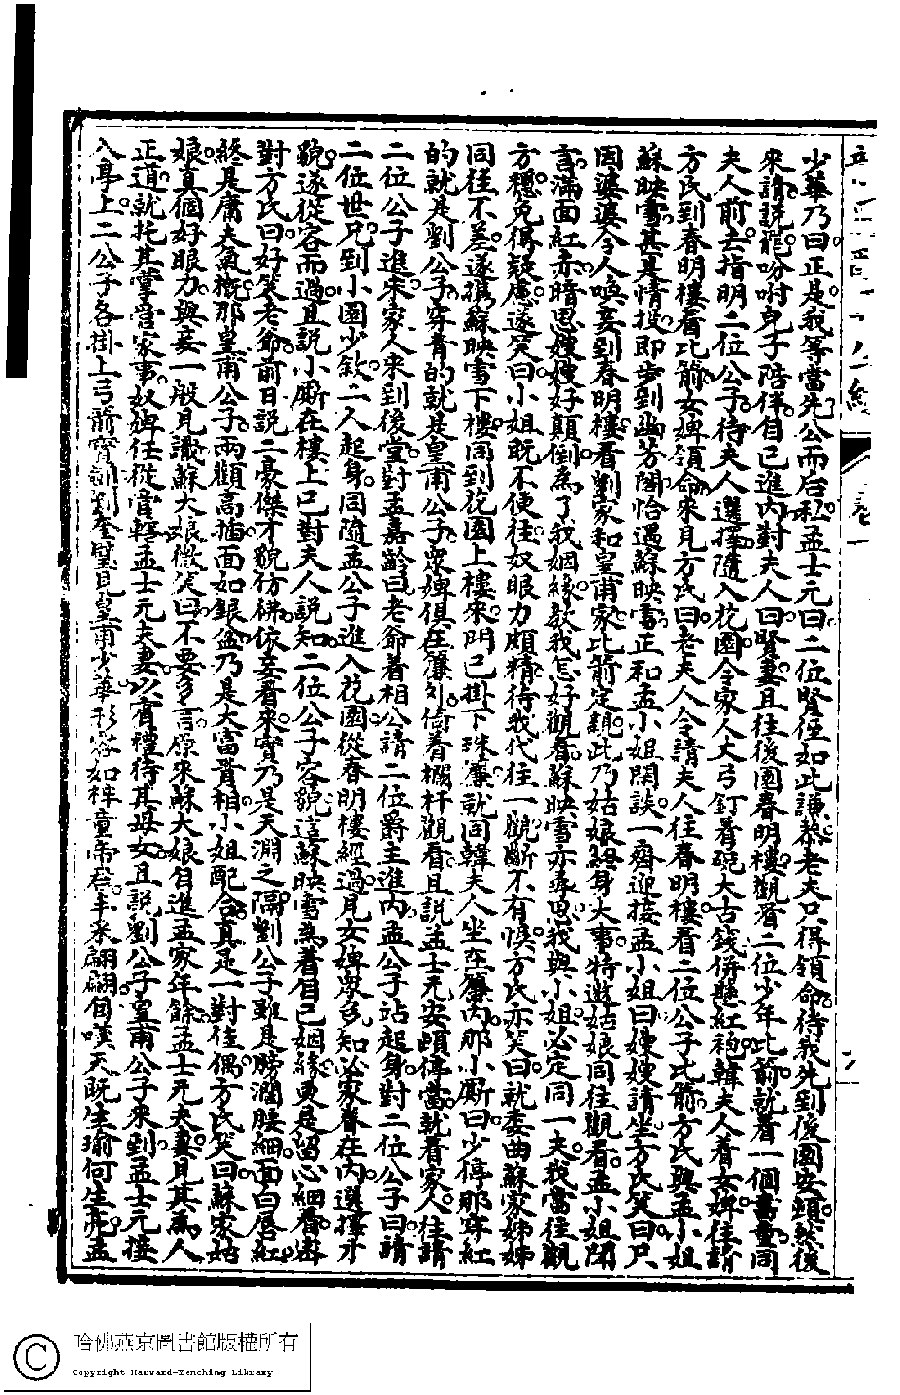 少華乃曰正是我等當先公而后私孟士元曰二位賢侄如此謙恭老夫只得領命待我先到後園安頓然後
來請說罷吩咐兒子陪伴自己進內對夫人曰賢妻且往後園春明樓觀看二位少年比箭就着一個書童同
夫人前去指明二位公子待夫人選擇隨入花園令家人丈弓釘着碗大古錢併懸紅袍韓夫人着女婢往請
方氏到春明樓看比箭女婢領命來見方氏曰老夫人令請夫人往春明樓看二位公子比箭方氏與孟小姐
蘇映雪甚是情投即步到幽芳閣恰遇蘇映雪正和孟小姐閑談一齊迎接孟小姐曰嫂嫂請坐方氏笑曰只
因婆婆令人喚妾到春明樓看劉家和皇甫家比箭定親此乃姑娘終身大事特邀姑娘同往觀看孟小姐聞
言滿面紅赤暗思嫂嫂好顛倒為了我姻緣教我怎好觀看蘇映雪亦尋思我與小姐必定同一夫我當往觀
方穩免得疑慮遂笑曰小姐既不便往奴眼力頗精待我代往一觀斷不有悞方氏亦笑曰就委曲蘇家姊姊
同往不差遂攜蘇映雪下樓同到花園上樓來門已掛下珠簾就同韓夫人坐在簾內那小廝曰少停那穿紅
的就是劉公子穿青的就是皇甫公子眾婢俱在簾外倚着欄杆觀看且說孟士元安頓停當就着家人往請
二位公子進來家人來到後堂對孟嘉齡曰老爺着相公請二位爵主進內孟公子站起身對二位公子曰請
二位世兄到小園少敘二人起身同隨孟公子進入花園從春明樓經過見女婢眾多知必家眷在內選擇才
貌遂從容而過且說小廝在樓上已對夫人說知二位公子容貌這蘇映雪為着自己姻緣更是留心細看密
對方氏曰好笑老爺前日說二豪傑才貌彷彿依妾看來實乃是天淵之隔劉公子雖是膀濶腰細面白唇紅
終是庸夫氣概那皇甫公子兩觀高插面如銀盆乃是大富貴相小姐配合真是一對佳偶方氏笑曰蘇家姑
娘真個好眼力與妾一般見識蘇大娘微笑曰不要多言原來蘇大娘自進孟家年餘孟士元夫妻見其為人
正道就托其掌管家事奴婢任從管轄孟士元夫妻以賓禮待其母女且說劉公子皇甫公子來到孟士元接
入亭上二公子各掛上弓箭寶劍劉奎璧見皇甫少華形容如梓童帝君丰采翩翩自嘆天既生瑜何生亮孟
哈佛燕京圖書館版權所有
Copyright Harvard-Yenching Library